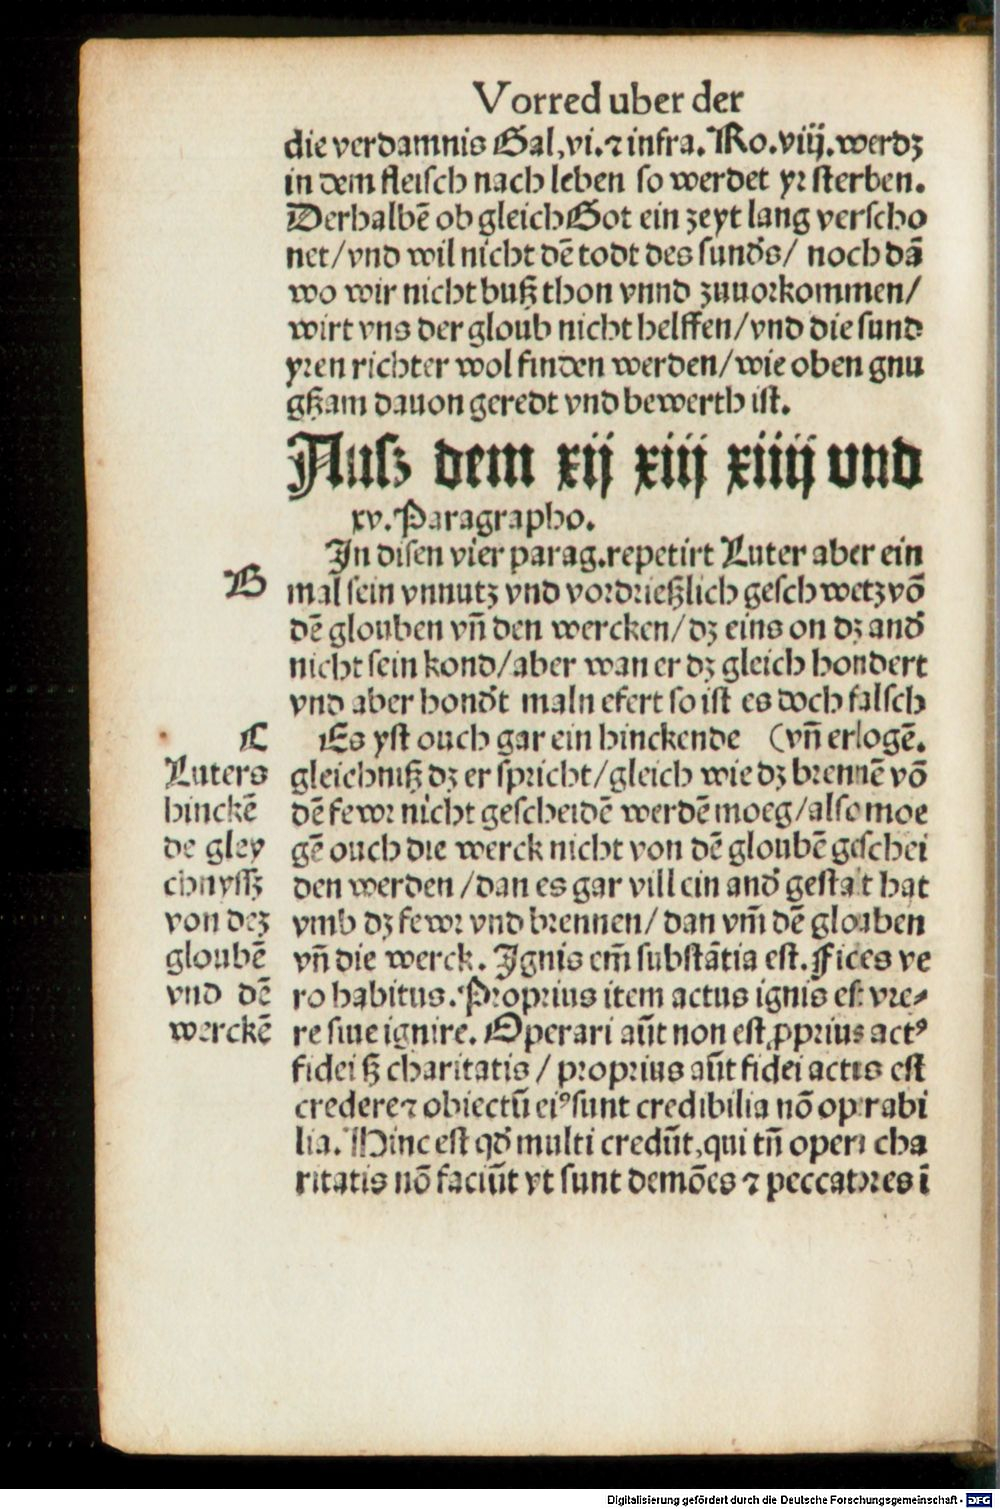 Vorred uber der
die verdamnis Gal,vi.⁊ infra. Ro.viij.werdꝫ
in dem fleisch nach leben so werdet yr sterben.
Derhalbē ob gleich Got ein zeyt lang verscho
net/vnd wil nicht dē todt des sunds̄/ noch dā
wo wir nicht buß thon vnnd zuuorkommen/
wirt vns der gloub nicht helffen/vnd die sund
yren richter wol finden werden/wie oben gnu
gßam dauon geredt vnd bewerth ist.
Ausz dem xij xiij xiiij vnd
xv. Paragrapho.
In disen vier parag.repetirt Luter aber ein
B
mal sein vnnutz vnd vordrießlich geschwetz vō
dē glouben vn̄ den wercken/dꝫ eins on dꝫ and̄
nicht sein kond/aber wan er dꝫ gleich hondert
vnd aber hond̄t maln efert so ist es doch falsch
C
Es yst ouch gar ein hinckende (vn̄ erlogē.
Luters
gleichniß dꝫ er spricht/gleich wie dꝫ brennē vō
hinckē
dē fewr nicht gescheidē werdē moeg/also moe
de gley
gē ouch die werck nicht von dē gloubē geschei
chnyssz
den werden/dan es gar vill ein and̄ gestalt hat
von deꝫ
vmb dꝫ fewr vnd brennen/dan vm̄ dē glouben
gloubē
vn̄ die werck. Ignis em̄ substātia est. Fices ve
vnd dē
ro habitus. Proprius item actus ignis est vre⸗
werckē
re siue ignire. Operari aūt non est ꝓprius actꝰ
fidei ß charitatis/proprius aūt fidei actus est
credere⁊ obiectū eiꝰ sunt credibilia nō operabi
lia. Hinc est qd̄ multi credūt,qui tn̄ opera cha
ritatis nō faciūt vt sunt demōes ⁊ peccatores ī
Digitalisierung gefördert durch die Deutsche Forschungsgemeinschaft - DFG